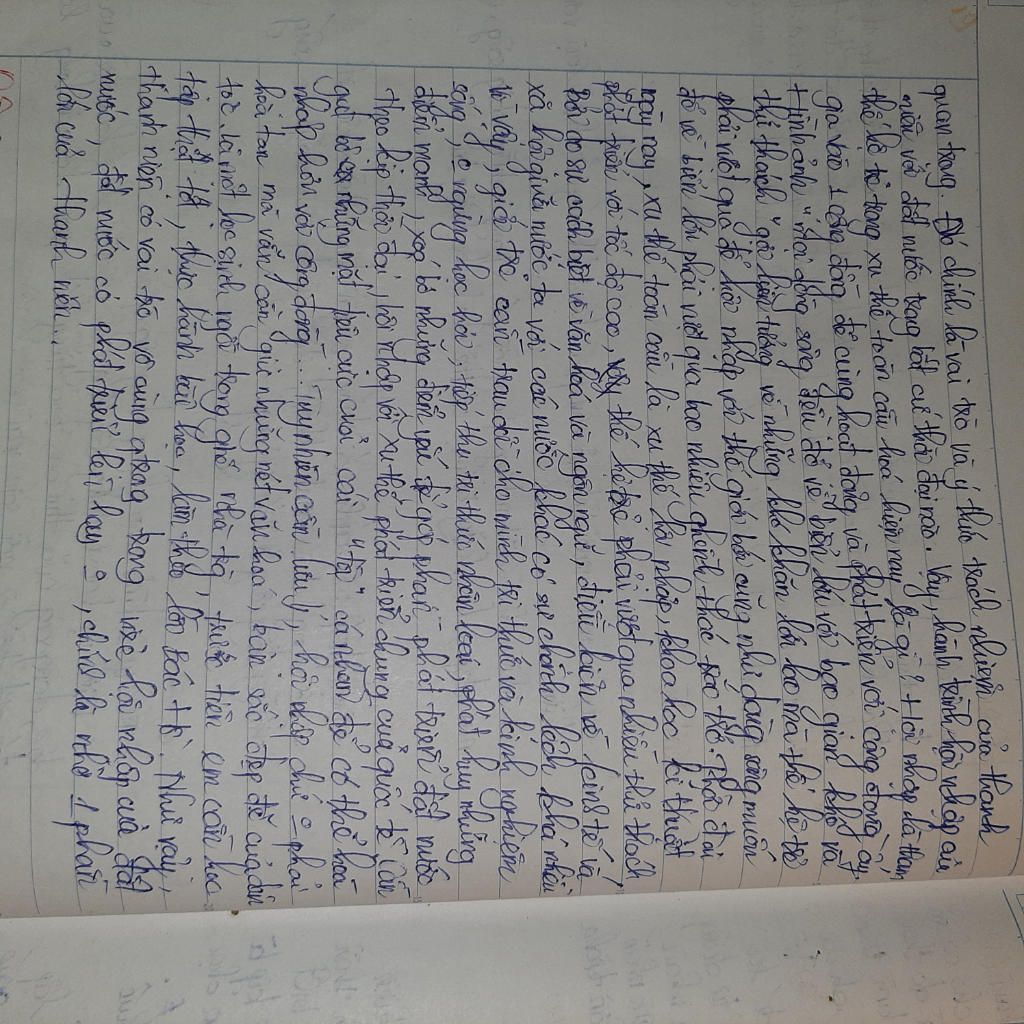 quan trọng. Đó chính là vai trò và ý thức trách nhiệm của thanh
niên với đất nước trong bất cứ thời đại nào. Vậy, hành trình hội nhập của
thế hệ trẻ trong xu thế toàn cầu hoá hiện nay là gì? Hội nhập là tham
gia vào 1 cộng đồng để cùng hoạt động và phát triển với cộng đồng ấy.
Hình ảnh "mọi dòng sông đều đổ về biển lớn với bao gian khó và
thử thách" gợi liên tưởng về những khó khăn lớn lao mà thế hệ trẻ
phải vượt qua để hội nhập với thế giới bởi cũng như dòng sông muốn
đổ về biển lớn phải vượt qua bao nhiêu ghềnh thác Thời đại
ngày nay, xu thế toàn cầu là xu thế hội nhập, khoa học kĩ thuật
phát triển với tốc độ cao, thế hệ trẻ phải vượt qua nhiều thử thách
bởi do sự cách biệt về văn hoá và ngôn ngữ, điều kiện về kinh tế và
xã hội giữa nước ta với các nước khác có sự chênh lệch khá nhiều
vì vậy, giới trẻ cần trau dồi cho mình tri thức và kinh nghiệm
sống, o ngừng học hỏi, tiếp thu tri thức nhân loại, phát huy những
điểm mạnh, xoá bỏ những điểm yếu để góp phần phát triển đất nước
theo kịp thời đại, hội nhập với xu thế phát triển chung của quốc tế cần
gạt bỏ những mặt tiêu cực của cái "tôi" cá nhân để có thể hoà
nhập hơn với cộng đồng... Tuy nhiên cần lưu ý, hội nhập chứ o phải
hoà tan mà vẫn cần giữ những nét văn hoá, bản sắc tốt đẹp của dân
tộc. Là một học sinh ngồi trong ghế nhà trg, trước tiên em cần học
tập thật tốt, thực hành làm theo lời Bác Hồ. Như vậy,
thanh niên có vai trò vô cùng qtrọng trong việc hội nhập của đất
nước, đất nước có phát triển hay o, chính là nhờ 1 phần
lớn của thanh niên.